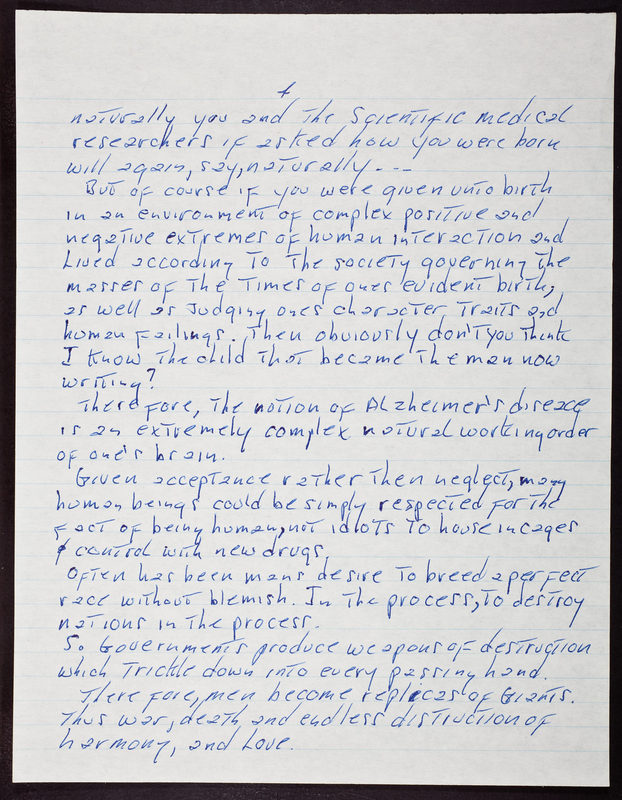 4
naturally you and the Scientific medical
researchers if asked how you were born
will again, say, naturally ---
But of course if you were given unto birth
in an environment of complex positive and
negative extremes of human interaction and
Lived according to the society governing the
masses of the times of ones evident birth;
as well as Judging ones character traits and
human failings. Then obviously don't you think
I know the child that became the man now
writing?
There fore, the notion of Alzheimer's disease
is an extremely complex natural working order
of one's brain.
Given acceptance rather then neglect, many
human beings could be simply respected for the
fact of being human, not idiots to house in cages
& control with new drugs.
Often has been mans desire to breed a perfect
race without blemish. In the process, to destroy
nations in the process.
So Governments produce weapons of destruction
which trickle down into every passing hand.
There fore, men become replicas of Giants.
Thus war, death and endless distruction of
harmony, and Love.